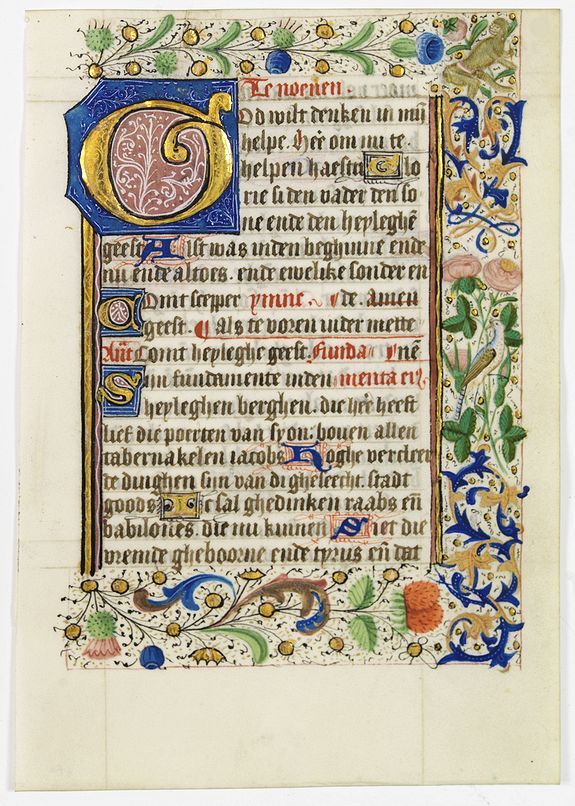 Te noenen.
God wilt denken in mij
helpe. her̄ om mi te
helpen haesti Glo
rie si den vader den so
ne ende den heyleghē
geest Alst was inden beghinne ende
nu ende altoes. ende ewelike sonder en
Comt scepper ymne. de. amen
geest. als te voren inder mette
Ant̄ Comt heyleghe geest. Funda ynē
Sijn fundamente inden menta ei9.
heyleghen berghen. die her̄ heeft
lief die poerten van syon: bouen allen
tabernakelen iacobs Hoghe verdeer
te dinghen sijn van di gheseecht. stadt
goods Ic sal ghedinken raabs en̄
babilones. die mi kinnen Siet die
vremde gheboorne ende tyrus en̄ dat